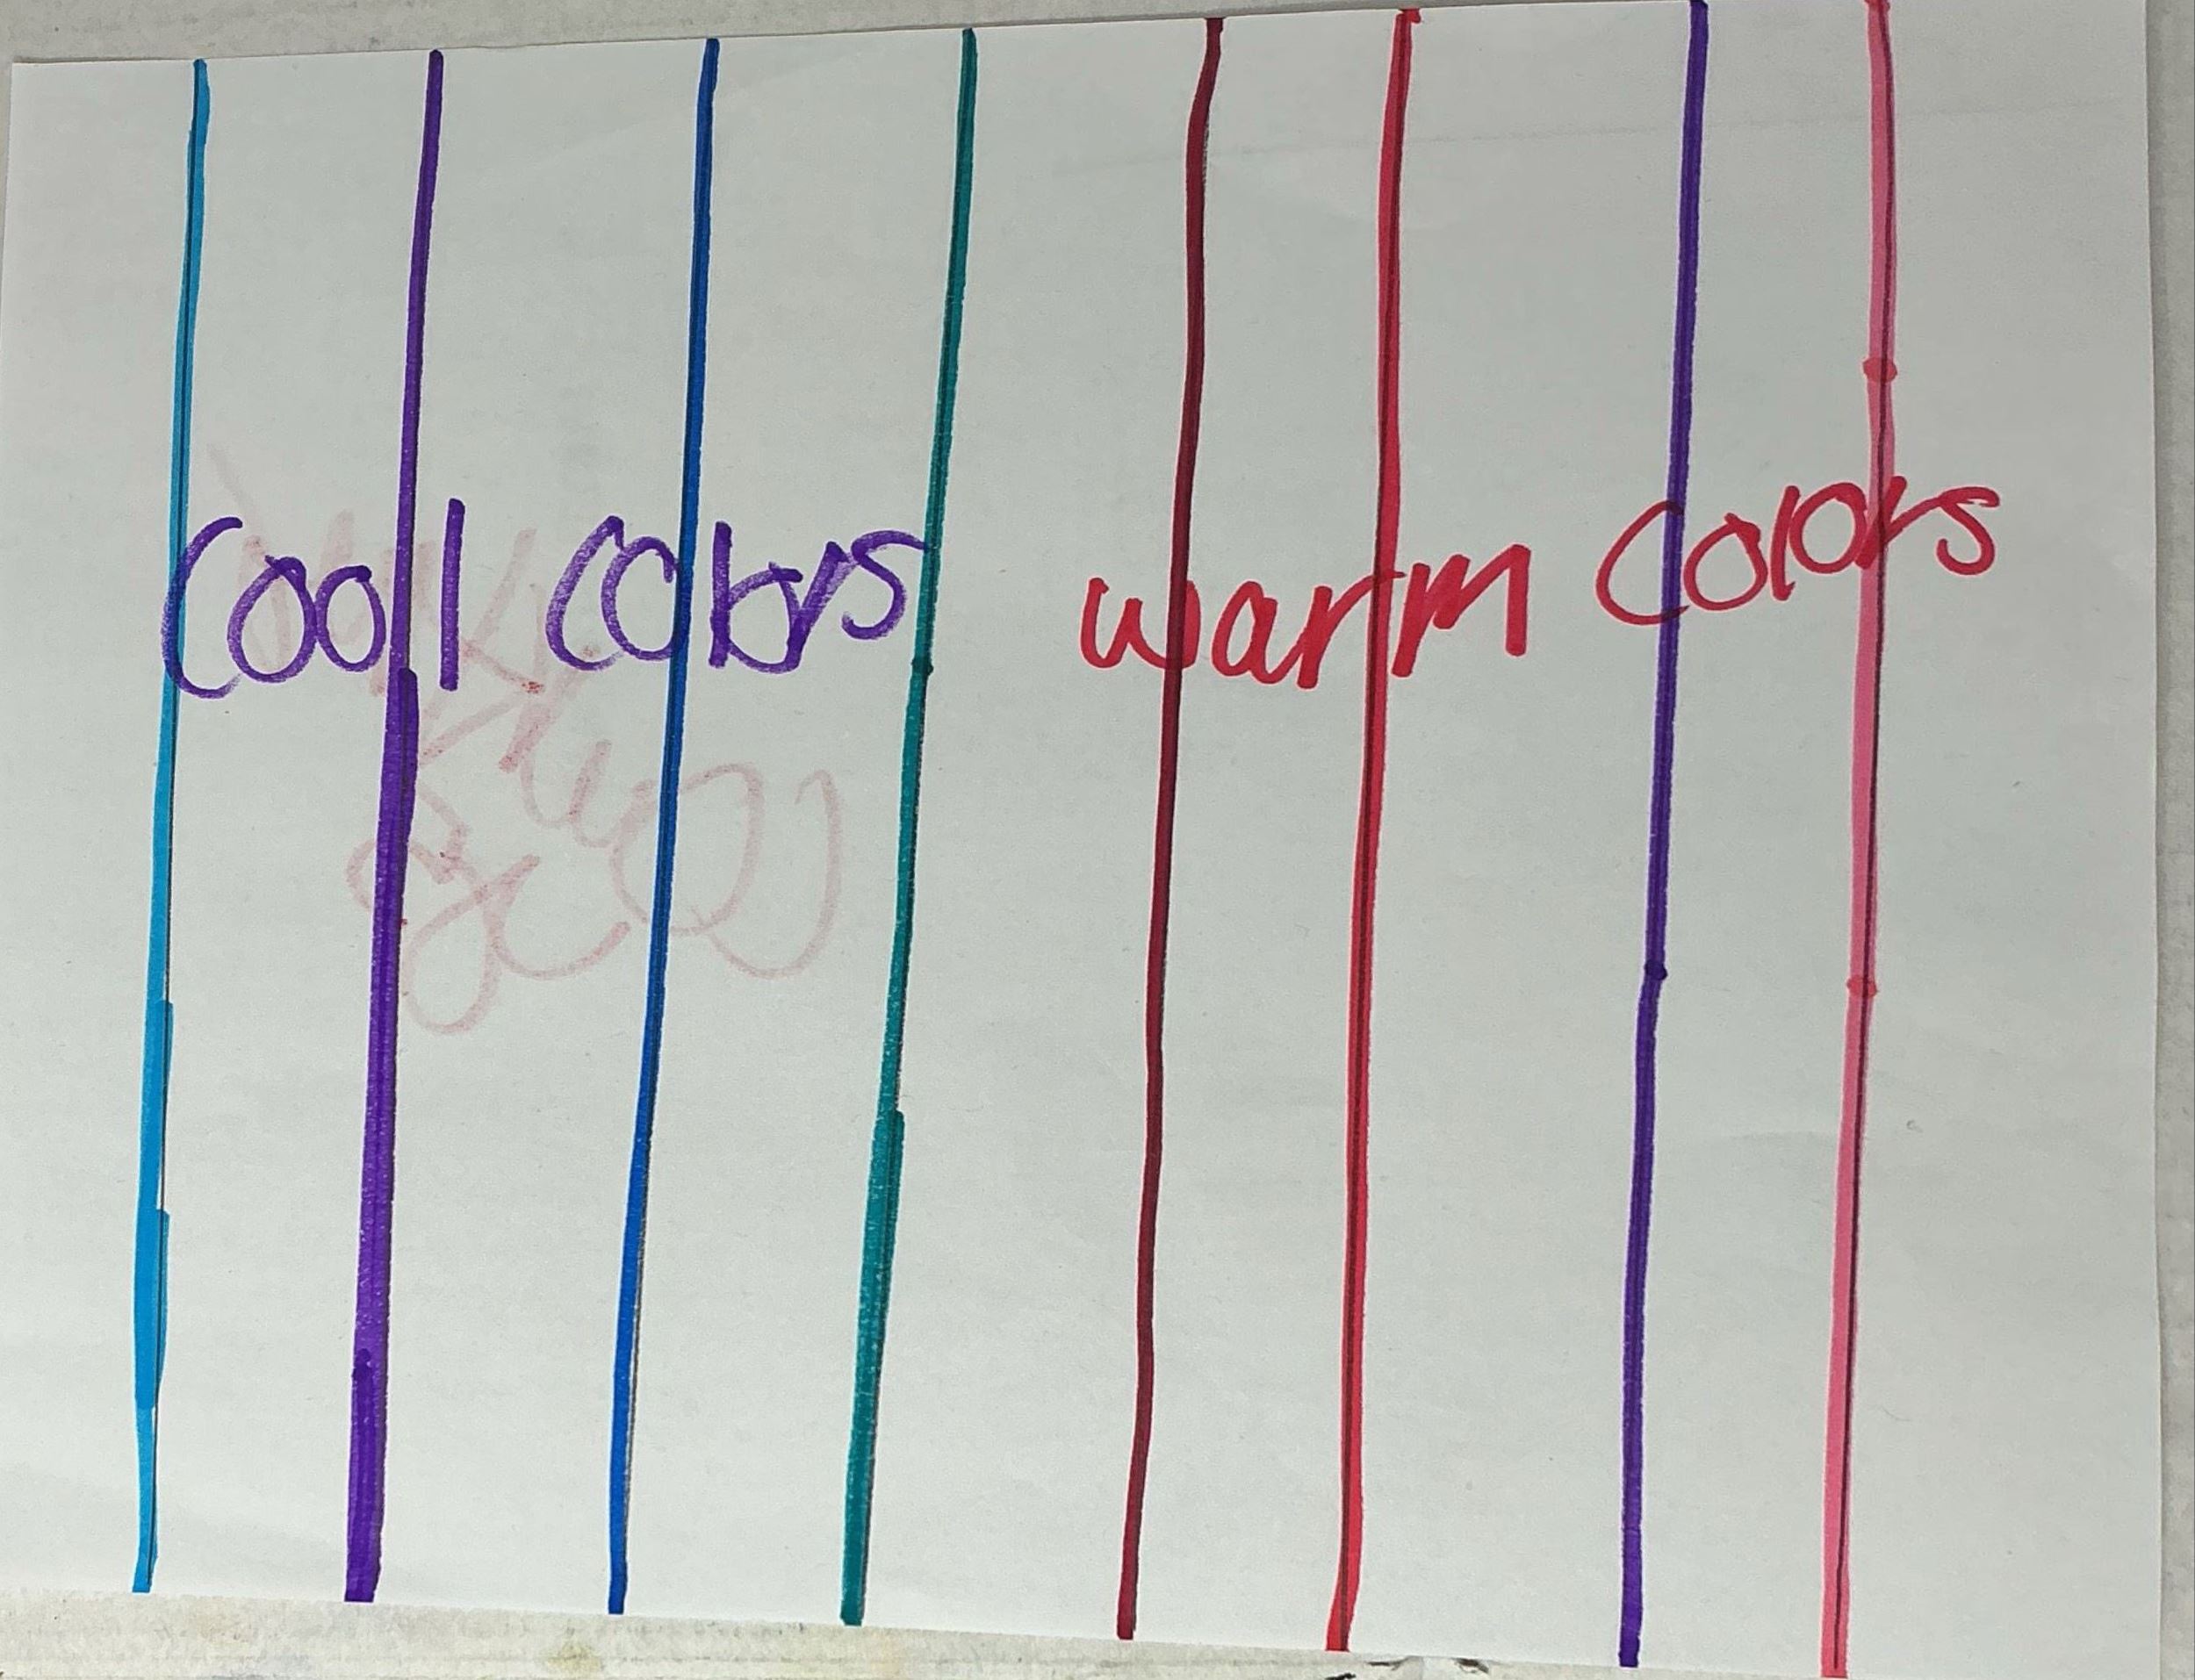 Cool Colors
warm Colors